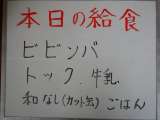 本日の給食
ビビンバ
トック 牛乳
和なし(カット缶)ごはん